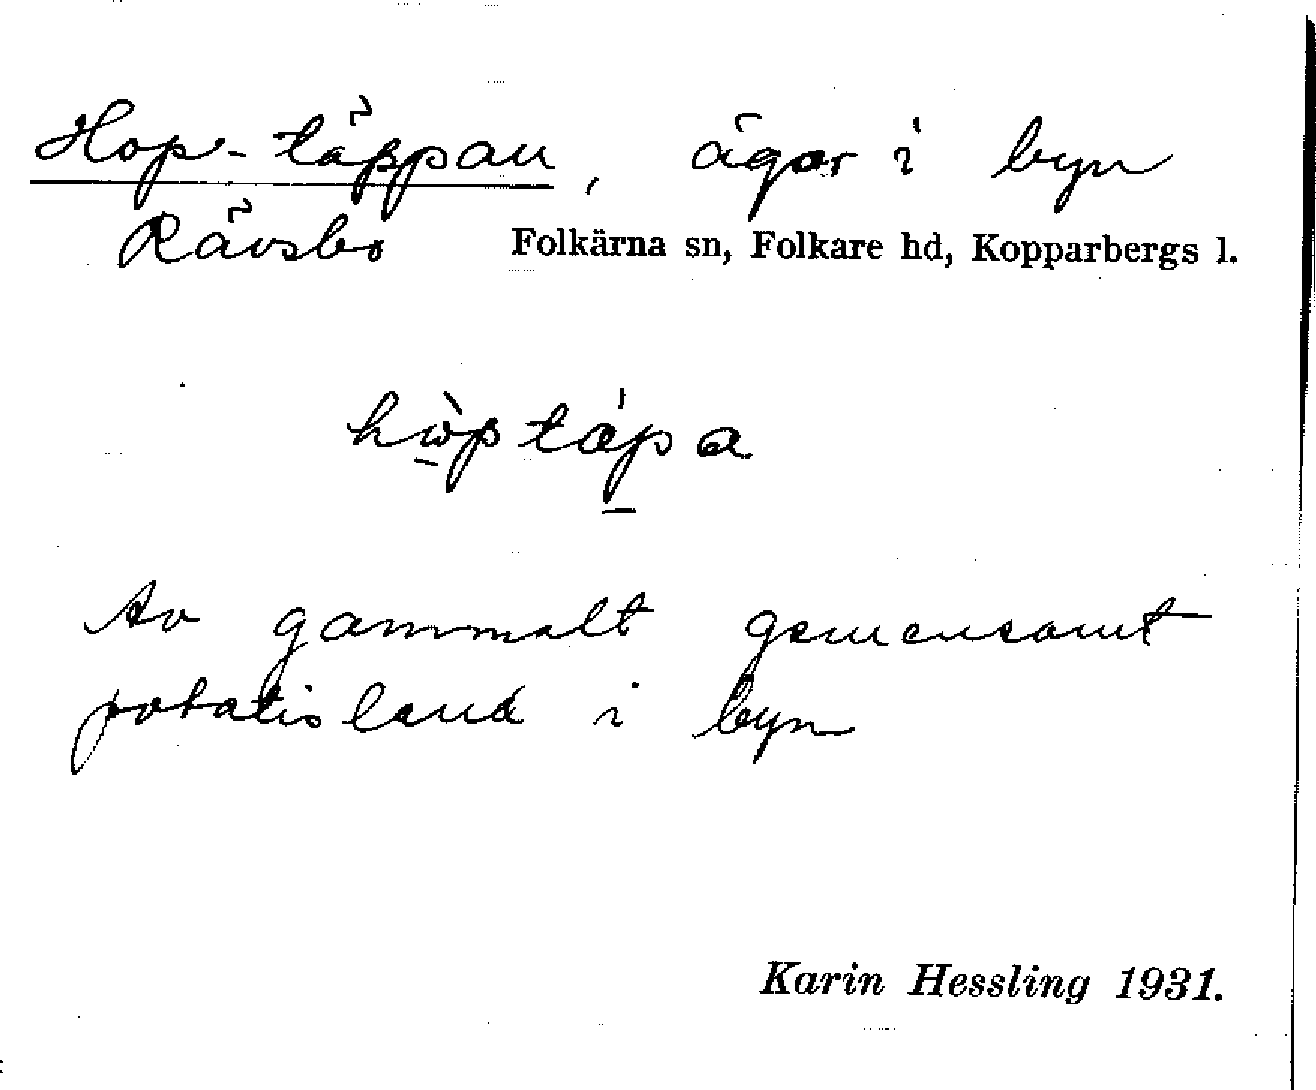 Hop-täppan, ägor i byn
Rävsbo Folkärna sn, Folkare hd, Kopparbergs l.
Av gammalt gemensamt
potatisland i byn
Karin Hessling 1931.